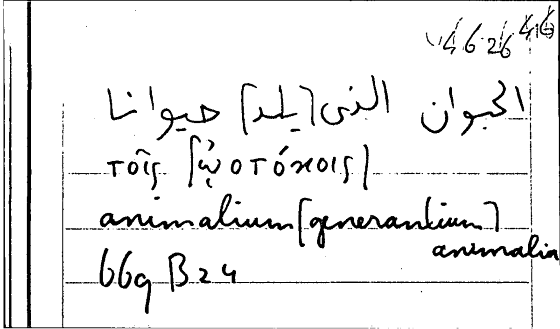 الحيوان الذى [يلد] حيوانا
τοῖς [ᾠοτόκοις]
animalium [generantium]
animalia
669 B 24